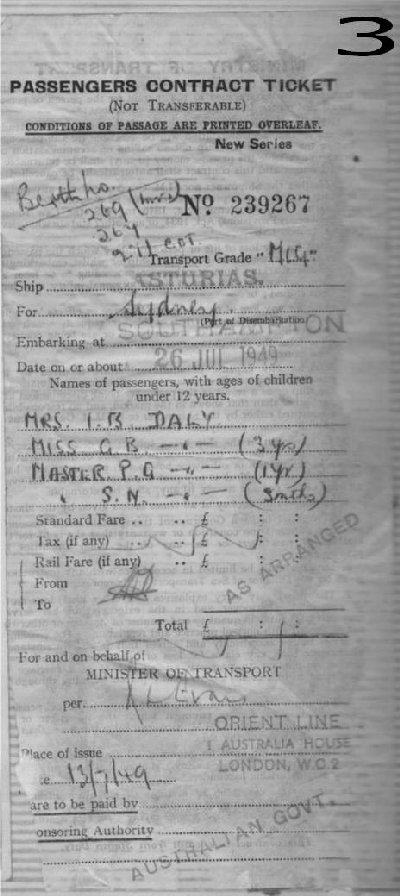 3
PASSENGERS CONTRACT TICKET
(NOT TRANSFERABLE)
CONDITIONS OF PASSAGE ARE PRINTED OVERLEAF.
New Series
Berth no.
269
267
271 cot
No 239267
Transport Grade "
Ship ASTURIAS.
For Sydney
(Port of Disembarkation)
Embarking at SOUTHAMPTON
Date on or about 26 JUL 1949
Names of passengers, with ages of children
under 12 years.
MRS. I. B DALY
MISS G. B. —"— (3 yrs)
MASTER P. D —"— (1 yr)
" S. N. —"— (3mths)
Standard Fare .. .. £ : :
Tax (if any) .. .. £ : :
Rail Fare (if any) .. £ : :
From
To
AS ARRANGED
Total £ : :
For and on behalf of
MINISTER OF TRANSPORT
per.
ORIENT LINE
Place of issue
1 AUSTRALIA HOUSE
LONDON, W.C.2
13/7/49
are to be paid by
onsoring Authority
AUSTRALIAN GOVT.